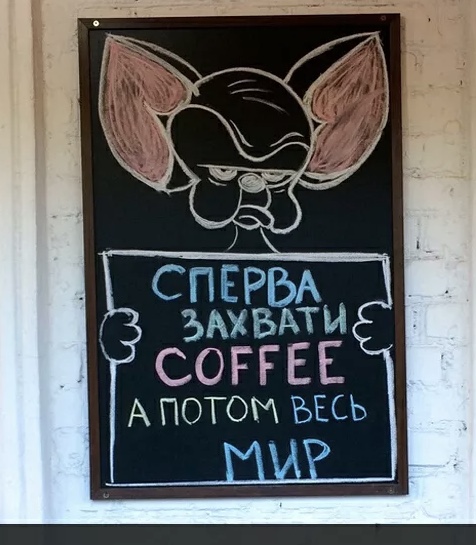 СПЕРВА
ЗАХВАТИ
COFFEE
А ПОТОМ ВЕСЬ
МИР